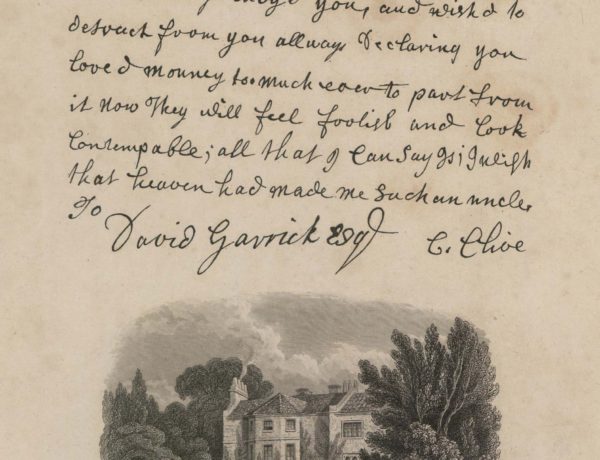 you, and wish'd to
detract from you allways Declaring you
loved monney too much ever to part from
it now They will feel foolish and look
Contempable; all that I Can Say Is; I wish
that heaven had made me Such an uncle.
To
David Garrick Esq^r C. Clive